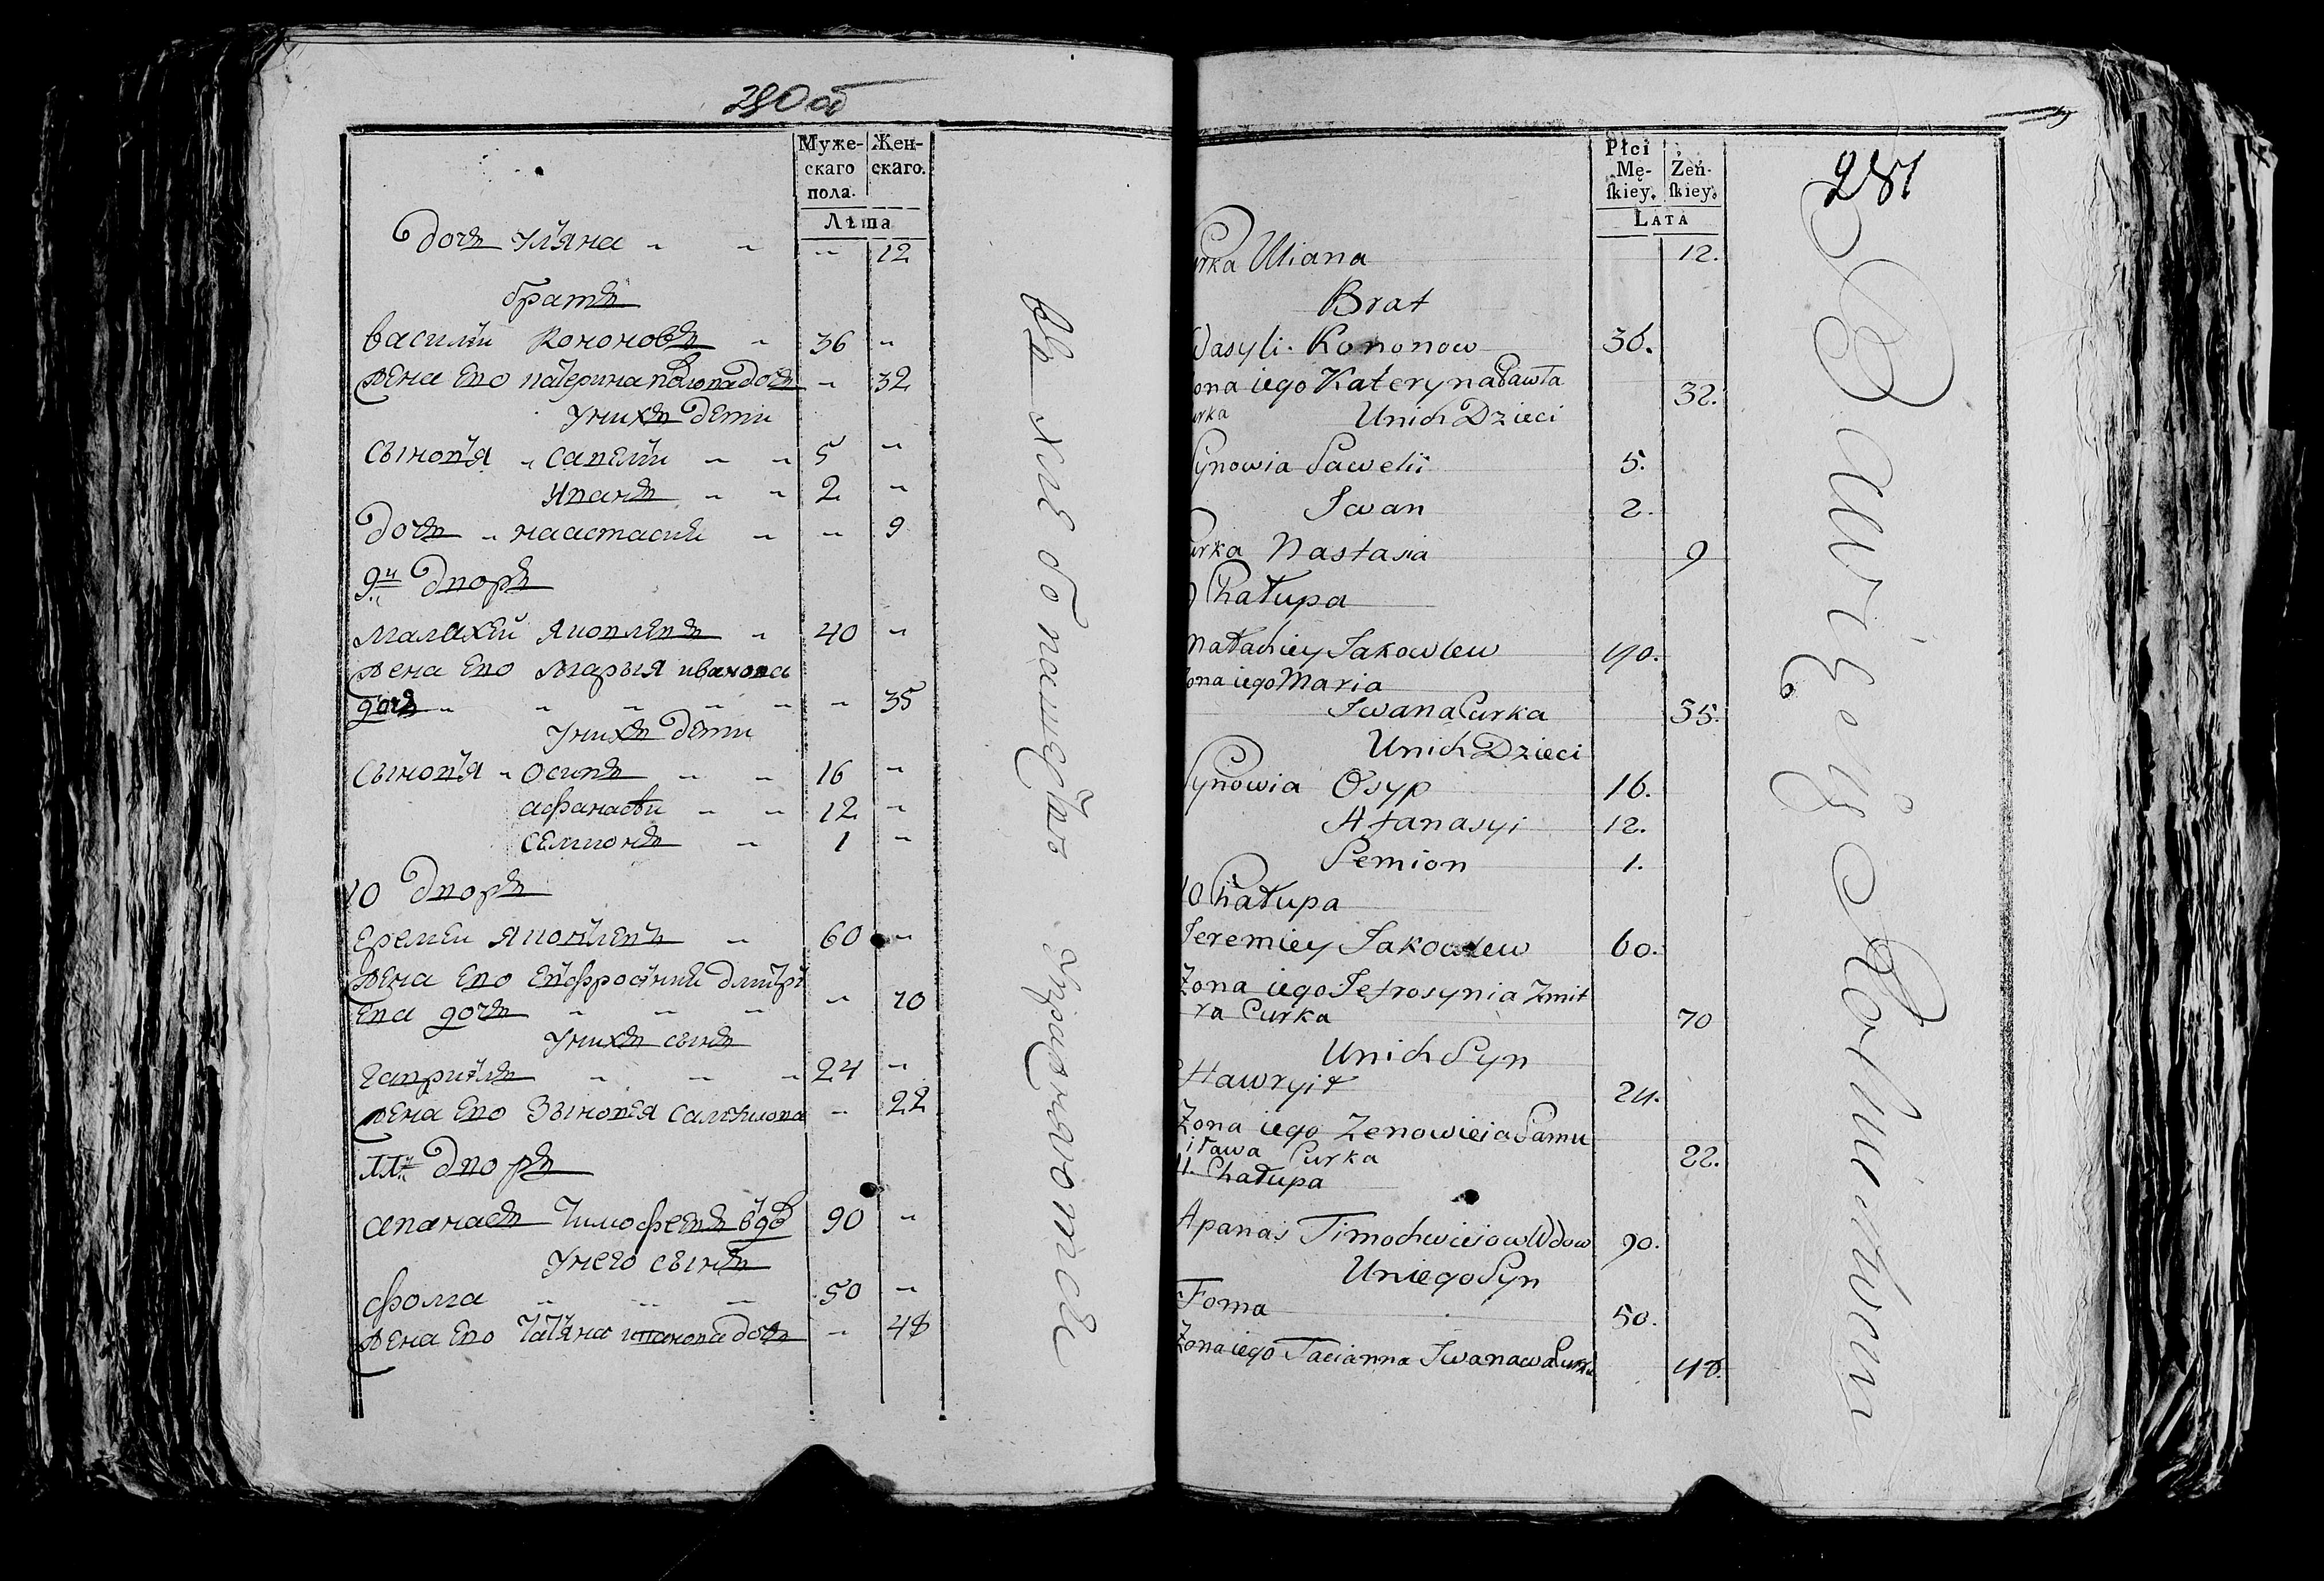 280 об
Муже-
скаго
пола.
Жен-
скаго.
Лѣта
дочъ ульяна " " " 12
братъ
василий кононовъ " 36 "
жена его катерина павлова дочъ " 32
у нихъ дети
сыновья " савелий " " 5 "
иванъ " " 2 "
дочъ " наастасия " " 9
9й дворъ
малахей яковлевъ " 40 "
жена его марья иванова
дочъ " " " " " " 35
у нихъ дети
сыновья " осипъ " " 16 "
афанасѣи " " 12 "
семионъ " 1 "
10 дворъ
еремеи яковлевъ " 60 "
жена его евфросиния дмитри
ева дочъ " " " " 70
у нихъ сынъ
гаврилъ " " " 24 "
жена его зыновея самуилова " 22
11й дворъ
апанасъ тимофеевъ вдов 90 "
у него сынъ
фома " " " 50 "
жена его татьяна иванова дочъ " 48
281
Płci
Mę-
ſkiey.
Żeń-
ſkiey.
LATA
urka Uliana 12.
Brat
Wasyli Kononow 36.
ona iego Kateryna Pawła
urka 32.
U nich Dzieci
Synowia Sawelii 5.
Iwan 2.
urka Nastasia 9
Chałupa
Małachiey Jakowlew 40.
ona iego Maria
Iwana Curka 35.
U nich Dzieci
Synowia Osyp 16.
Afanasyi 12.
Semion 1.
10 Chałupa
Jeremiey Jakowlew 60.
Zona iego Jefrosynia Zmit
ra Curka 70
U nich Syn
Hawryił 24.
Zona iego Zenowieia Samu
iława Curka 22.
11. Chałupa
Apanas Timochwieiow Wdow 90.
U niego Syn
Foma 50.
Zona iego Tacianna Iwanawa Curka 48.